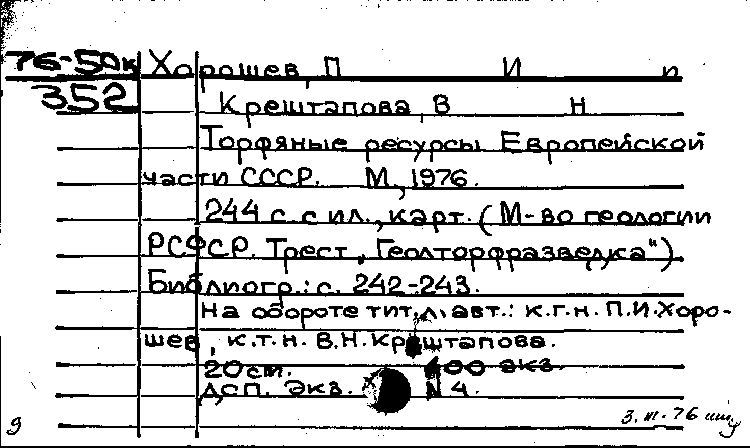 76-50к Хорошев, П И п
352 Крештапова, В Н
Торфяные ресурсы Европейской
части СССР. М., 1976.
244 с. с ил., карт. (М-во геологии
РСФСР. Трест „Геолторфразведка").
Библиогр.: с. 242-243.
На обороте тит. л. авт.: к.г.н. П.И.Хоро-
шев, к.т.н. В.Н.Крештапова.
20см. 400 экз.
ДСП. Экз. N 4.
3.III.76
9